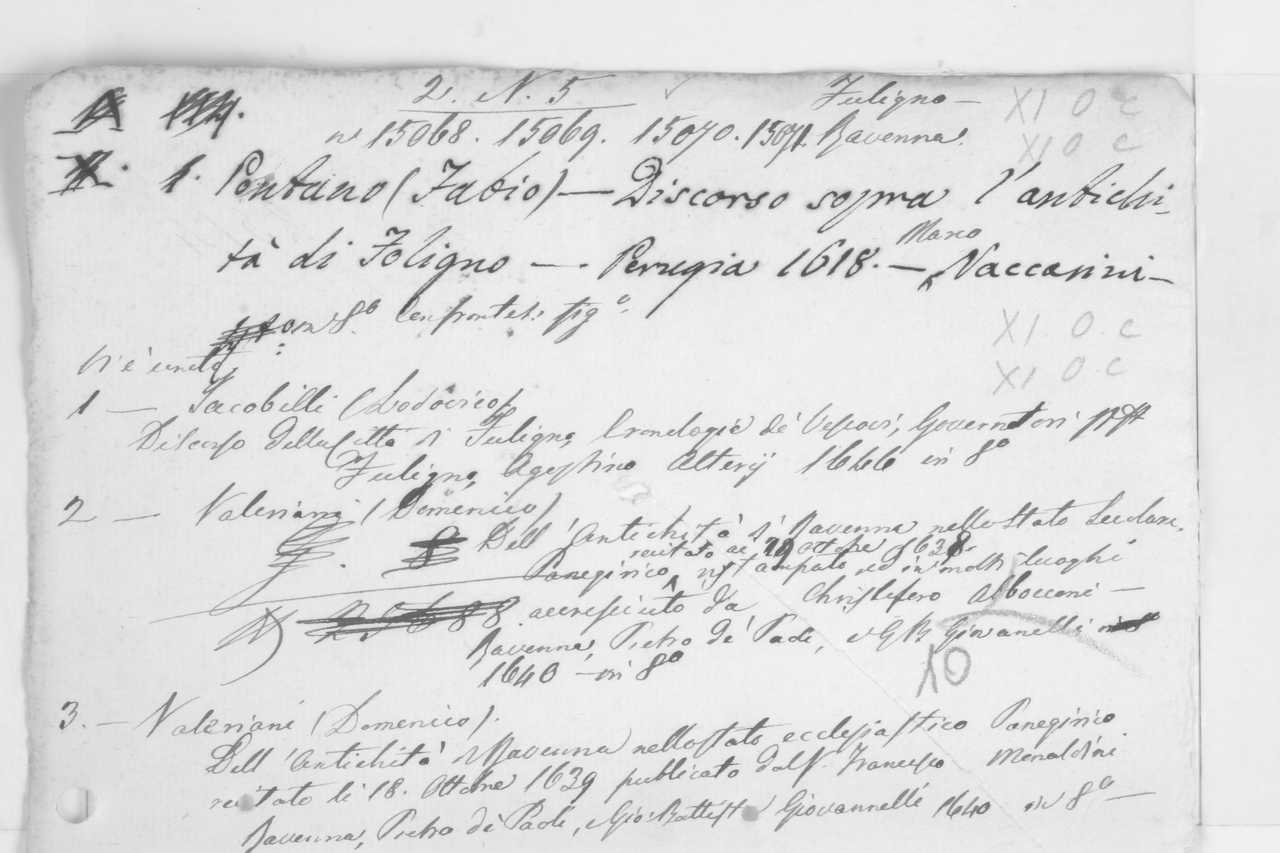 2. N. 5 Fuligno —
n 15068. 15069. 15070. 15071. Ravenna.
XI O c
XI O c
1. Pontano (Fabio) — Discorso sopra l'antichi-
tà di Foligno — . Perugia 1618. — Marco Naccarini —
in 8° Con frontesp. fig°.
XI. O. c
XI O. c
Vi è unito
1 — Jacobilli (Lodovico)
Discorso della città di Fuligno, Cronologia de' Vescovi, Governatori
Fuligno, Agostino Alterij 1646 in 8°
2 — Valeriani (Domenico)
Dell'Antichità di Ravenna nello stato Secolare.
recitato ai 19 Ottobre 1638.
Panegirico, ristampato ed in molti luoghi
accresciuto da Christofero Abbocconi —
Ravenna, Pietro de' Paoli, e G. B. Giovanelli
1640 — in 8°
10
3. — Valeriani (Domenico).
Dell'Antichità di Ravenna nello stato ecclesiastico Panegirico
recitato li 18. Ottobre 1639 publicato dal Francesco Monaldini
Ravenna, Pietro de' Paoli, e Gio: Battista Giovannelli 1640 in 8° —